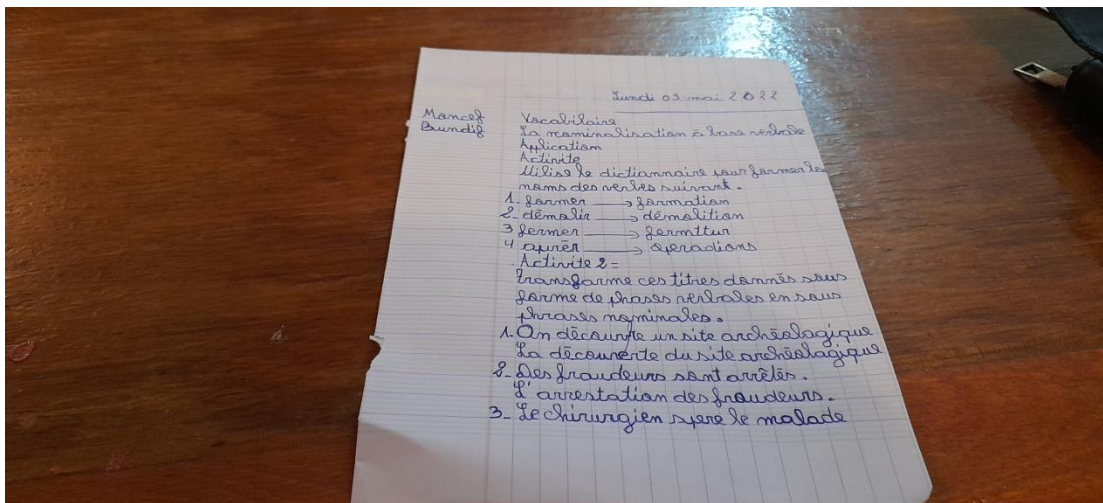 Lundi 09 mai 2022
Mancef
Brundif
Vocabilaire
La nominalisation à base verbale
Application
Activite
Utilise le dictionnaire pour former les
noms des verbes suivant.
1. former → formation
2. démolir → démolition
3 fermer → fermttur
4 opérer → operadions
Activite 2=
Transforme ces titres donnés sous
forme de phases verbales en sous
phrases nominales.
1. On découvre un site archéologique
La découverte du site archéologique
2. Des fraudeurs sont arrêtés.
L'arrestation des fraudeurs.
3_ Le chirurgien opere le malade